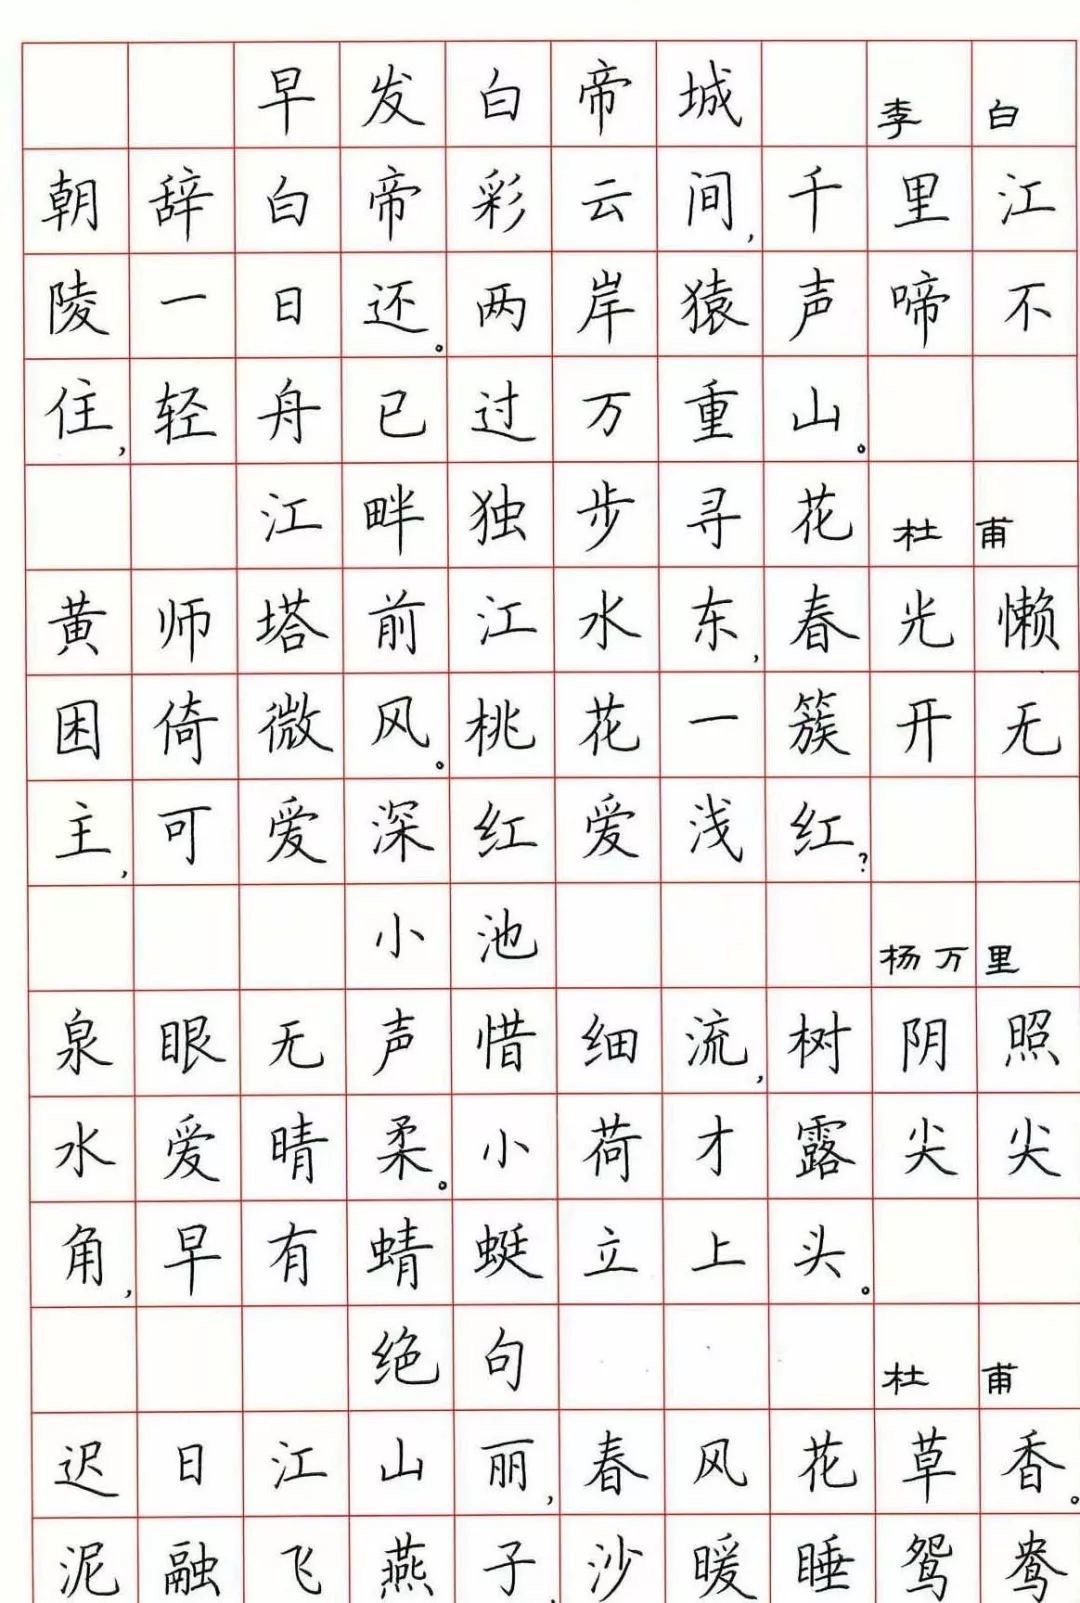 早发白帝城 李白
朝辞白帝彩云间,千里江
陵一日还。两岸猿声啼不
住,轻舟已过万重山。
江畔独步寻花 杜甫
黄师塔前江水东,春光懒
困倚微风。桃花一簇开无
主,可爱深红爱浅红?
小池 杨万里
泉眼无声惜细流,树阴照
水爱晴柔。小荷才露尖尖
角,早有蜻蜓立上头。
绝句 杜甫
迟日江山丽,春风花草香。
泥融飞燕子,沙暖睡鸳鸯